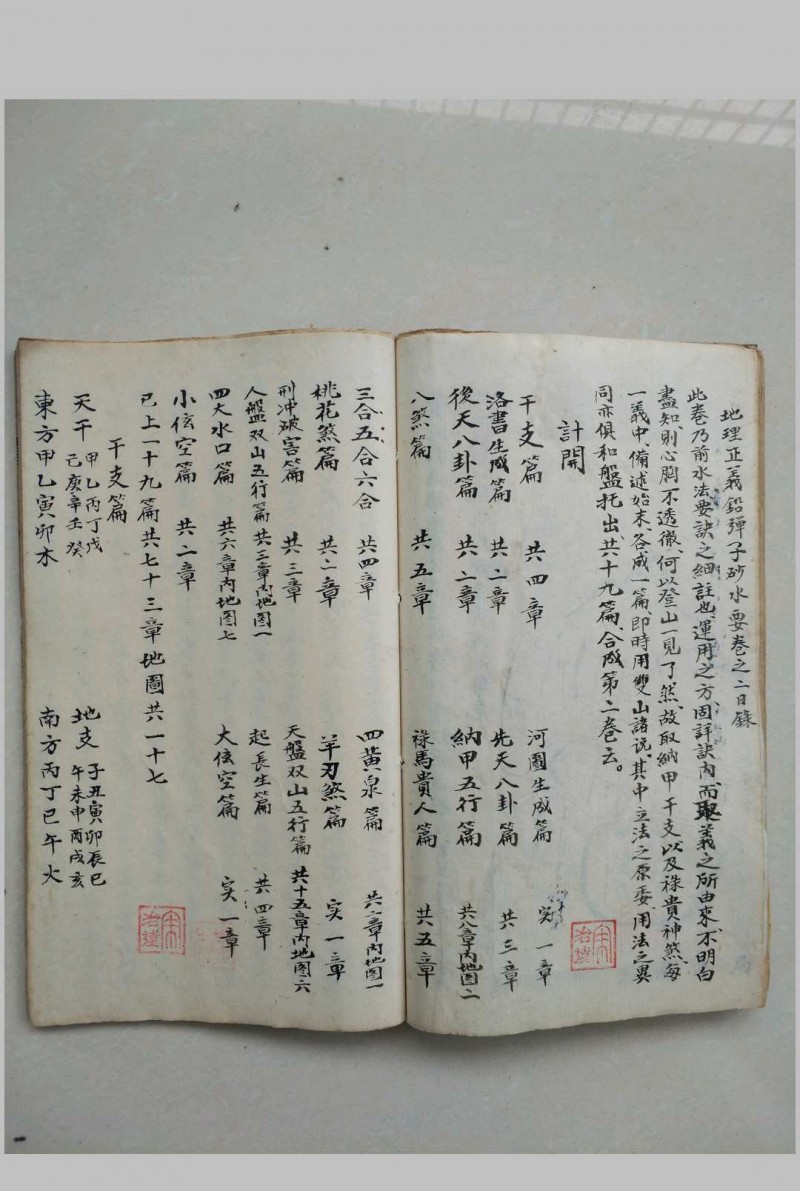 地理正義鉛彈子砂水要卷之二目錄
此卷乃前水法要訣之細註也、運用之方、固詳訣內、而取義之所由來、不明白
盡知、則心胸不透徹、何以登山一見了然、故取納甲干支、以及祿貴神煞、每
一義中、備述始末、各成一篇、即時用雙山諸說、其中立法之原委、用法之異
同亦俱和盤托出、共十九篇、合成第二卷云。
計開
干支篇 共四章 河圖生成篇 实一章
洛書生成篇 共二章 先天八卦篇 共三章
後天八卦篇 共二章 納甲五行篇 共八章內地图二
八煞篇 共五章 祿馬貴人篇 共五章
三合五合六合 共四章 四黃泉篇 共六章內地图一
桃花煞篇 共二章 羊刃煞篇 实一章
刑冲破害篇 共三章 天盤双山五行篇 共十五章內地图六
人盤双山五行篇 共三章內地图一 起長生篇 共四章
四大水口篇 共六章內地图七 大佉空篇 实一章
小佉空篇 共二章
已上一十九篇 共七十三章 地圖共一十七
干支篇
天干 甲乙丙丁戊己庚辛壬癸 地支 子丑寅卯辰巳午未申酉戌亥
東方甲乙寅卯木 南方丙丁巳午火